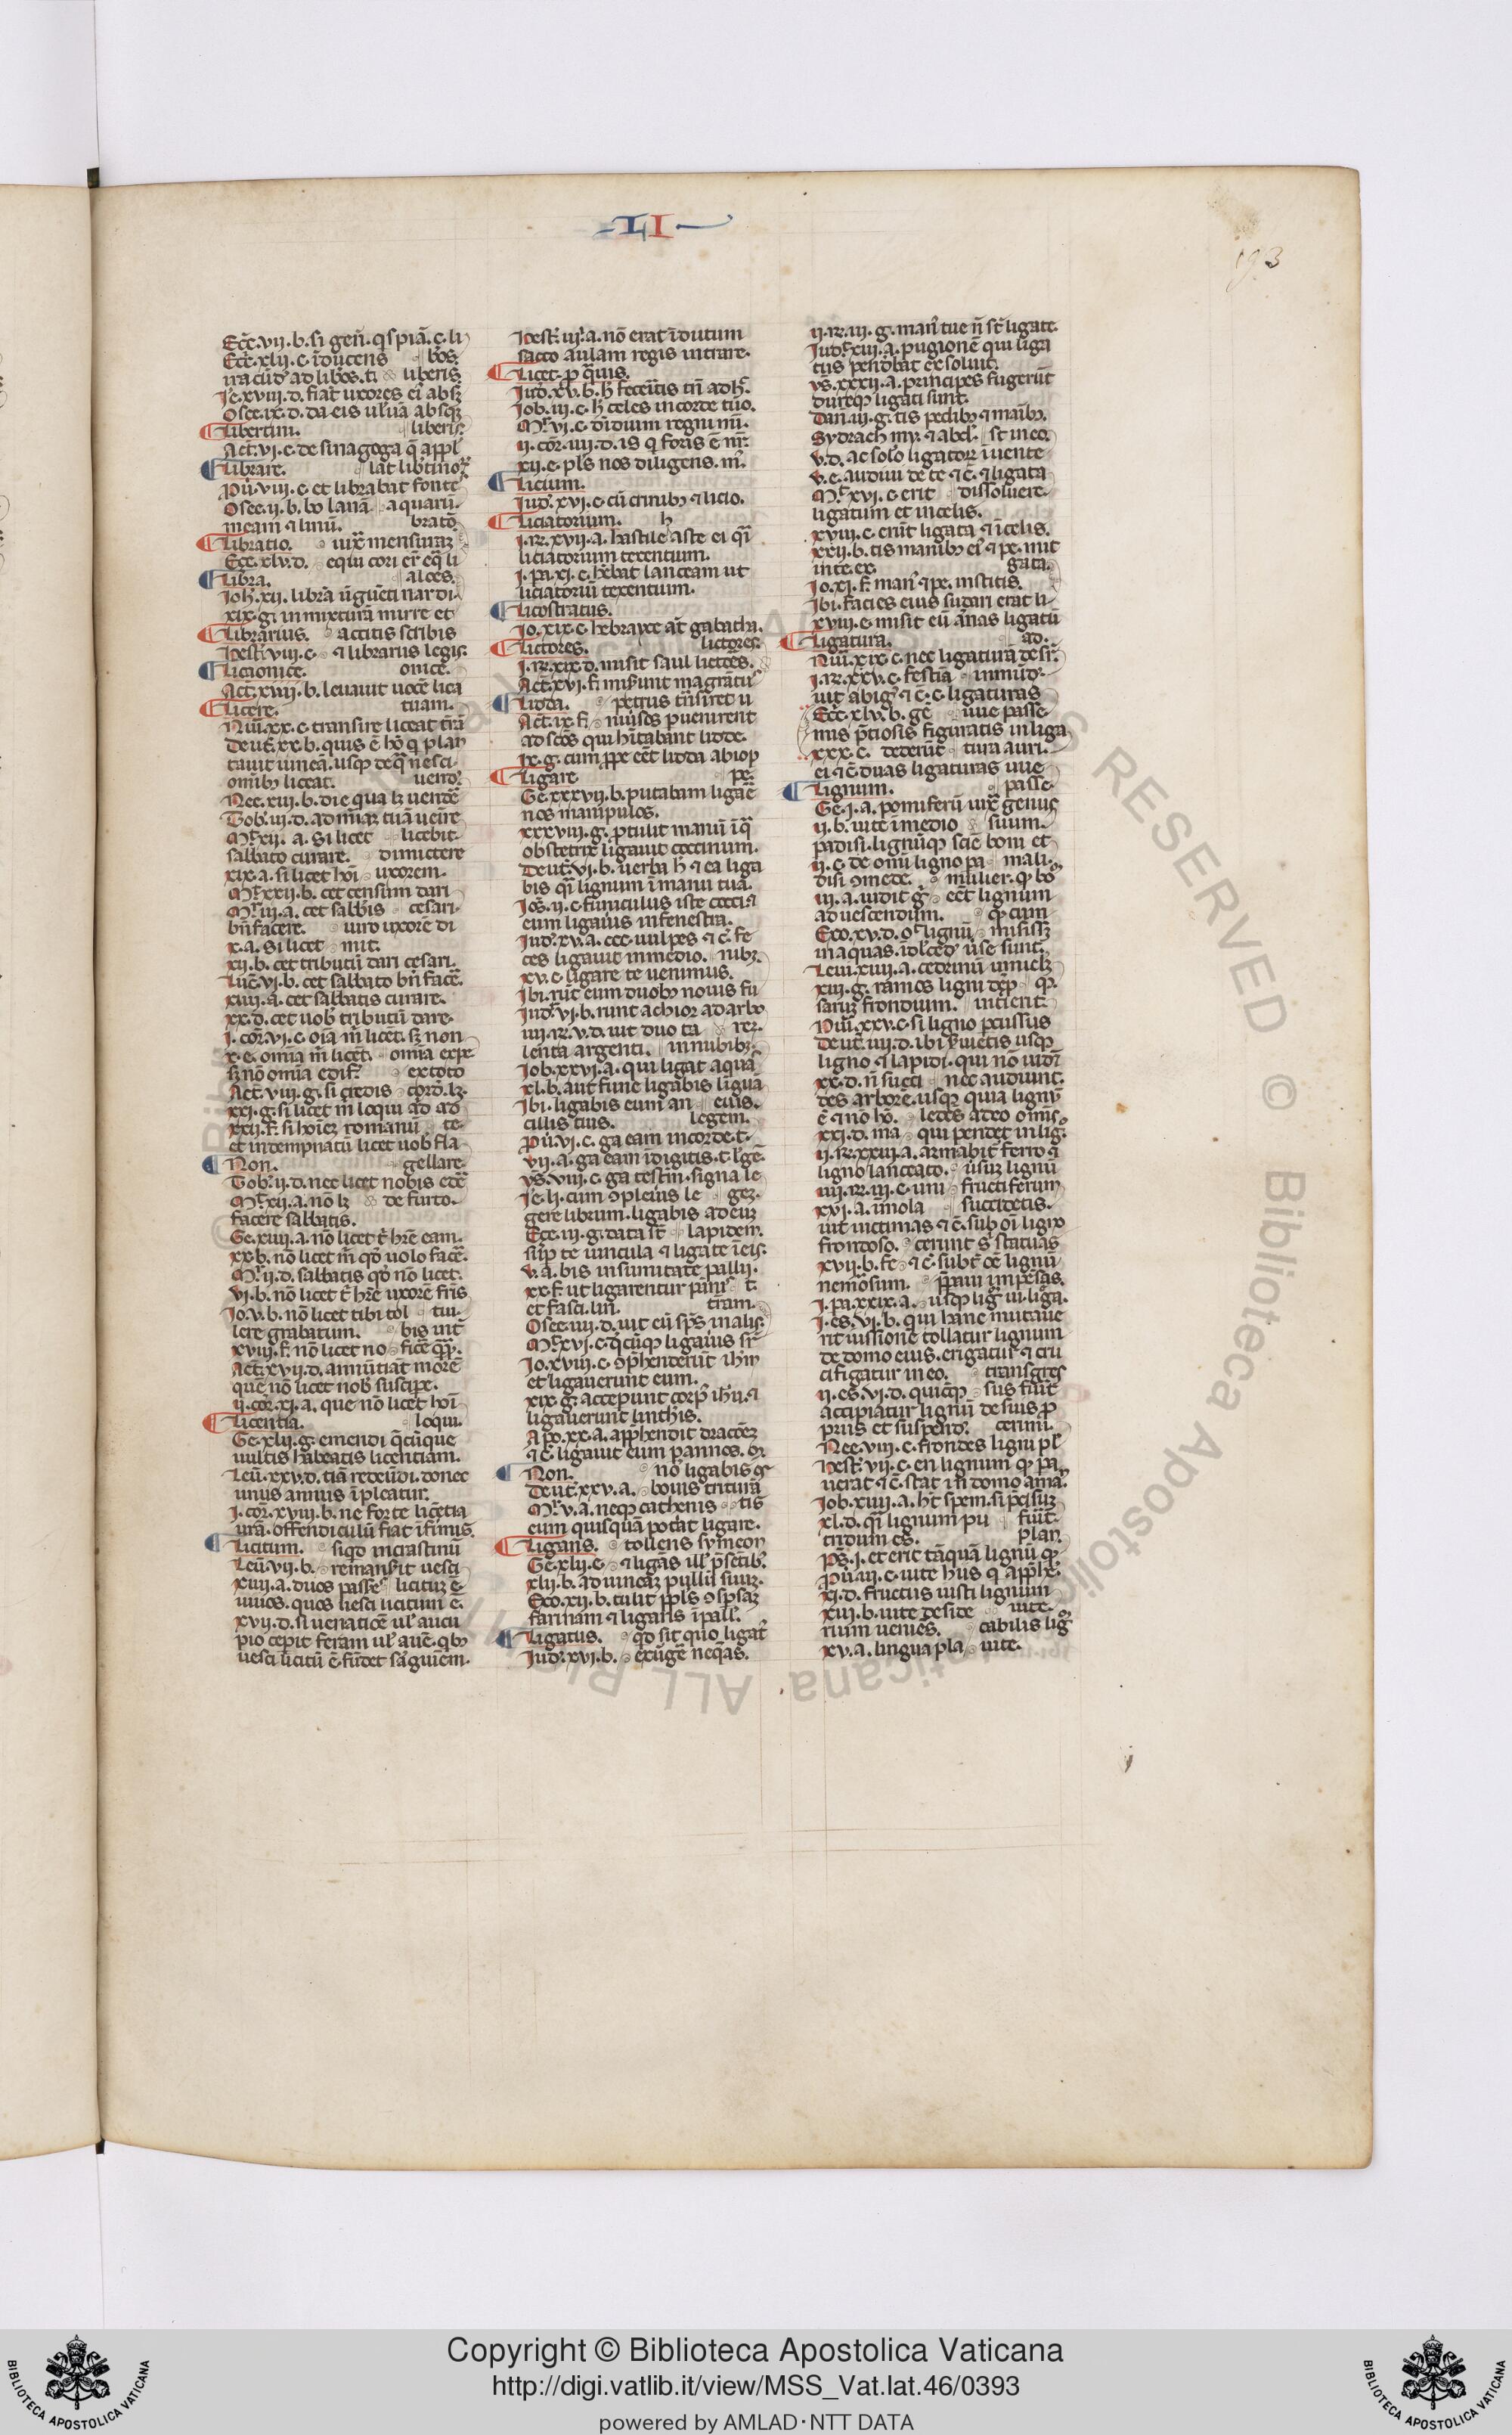 LI
193
Ecc̄. vii. b. si gen̄. q̄ spiā. c. li
Ecc̄. xlii. c. īducens bōs.
ira cūd' ad lib'os. ti liberis
Je. xviii. d. fiāt uxores ei' absq;
Osee. ix. d. da eis uuluā absq;
Libertini. liberis.
Act̄. vi. c. de sinagoga q̄ appl
Librare. lāt lib'tinoꝝ
Pu'. viii. c. et librabat fontē
Osee. ii. b. do lanā aquarū.
meam ⁊ linū. brato.
Libratio. iuxͣ mensuraꝫ
Eze. xlv. d. equi cori er̄ eq̄ li
Libra. alces.
Joh̄. xii. librā ūgūeti nardi
xix. g. in mixturā mirre et
Librarius. accitis scribis
Hest'. viii. c. ⁊ librariis legis.
Licaonice. onice.
Act̄. xiiij. b. leuauit uocē lica
Licere. tuam.
Nūi. xx. c. transire liceat t̄rā
Deut'. xx. b. quis ē hō q̄ plan
tauit uineā. usqꝫ deq̄ nesci
omībꝫ liceat. uend'.
Nee. xiii. b. die qua lꝫ uendē
Tob'. iii. d. ad miaꝫ tuā ueire
Mͭ. xii. a. Si licet licebit
sabbato curare. dimictere
xix. a. si licet hōi uxorem.
Mͭ. xxii. b. cet censum dari
Mͬ. iii. a. cet sabb'is cesari.
bn̄ facere. uiro uxorē di
x. a. Si licet mit.
xii. b. cet tributū dari cesari.
Luc̄. vi. b. cet sabbato bn̄ facē.
xiiii. a. cet sabbatis curare.
xx. d. cet uob' tributū dare.
i. cor̄. vi. c. oīa m̄ licēt. sꝫ non
x. e. omīa m̄ licēt. omīa expe
sꝫ nō omīa edif. ex toto
Act̄. viii. g. si credis cord'. lꝫ.
xxi. g. si licet m̄ loqui ad ad
xxii. f. si hoīeꝫ romanū te.
et indempnatū licet uob' fla
Non. gellare.
Tob'. ii. d. nec licet nobis edē
Mͭ. xii. a. nō lꝫ de furto.
facere sabbatis.
Ge. xiiii. a. nō licet t' hr̄e eam.
xx. b. nō licet m̄ qd' uolo facē.
Mͬ. ii. d. sabbatis qd' nō licet.
vi. b. nō licet t' hr̄e uxorē fr̄is
Jo. v. b. nō licet tibi tol tui.
lere grabatum. bis int̄
xviii. f. nō licet no ficē q̄q̄.
Act̄. xvii. d. annūtiāt morē
quē nō licet nob' suscipe.
ii. cor. xi. a. que nō licet hoī
Licentia. loqui.
Ge. xlii. g. emendi q̄cūque
uultis habeatis licentiam.
Leui'. xxv. d. tiā redeūdi. donec
unus annus īpleatur.
i. cor̄. xviii. b. ne forte licētia
ur̄a. offendiculū fiat īfirmis.
Licitum. si qd' in crastinū
Leui'. vii. b. remanserit uesci
xiiii. a. duos passeˢ licituꝫ ē.
uiuos. quos uesci licitum ē.
xvii. d. si uenaticē ul' aucu
pio cepit feram ul' auē. qbꝫ
uesci licitū ē. fūdet sāguinem.
Hest'. iiij. a. nō erat īdutum
sacco aulam regis intrare.
Licet. ꝓ q̄uis.
Jud'. xv. b. h̄ fecētis tn̄ ad h̄.
Job. iii. c. h̄ celes in corde tuo.
Mͬ. vi. c. dīdium regni mī.
ii. cor̄. iiii. d. is q foris ē nr̄.
xii. c. pl's nos diligens. mī.
Licium.
Jud'. xvi. c. cū crinibꝫ ⁊ licio.
Liciatorium. h
i. R̄. xvii. a. hastile aste ei' qͣi
liciatorium texentium.
i. pa. xi. c. hēbat lanceam ut
liciatoriū texentium.
Licostratus.
Jo. xix. c. hebrayce at̄ gabatha.
Lictores. lictores.
i. R̄. xix. d. misit saul lictōes.
Act̄. xvi. f. miserunt magratuˢ
Lidda. petrus tn̄siret u
Act̄. ix. f. niūsos puenirent
ad scōs qui hitabant lidde.
ix. g. cum ꝓpe eēt lidda abiop
Ligare. pe.
Ge. xxxvii. b. putabam ligāē
nos manipulos.
xxxviii. g. ꝓtulit manū īqͣ
obstetrix ligauit coccinum.
Deut'. vi. b. uerba h̄ ⁊ ea liga
bis qͣi signum ī manu tuā.
Jos'. ii. c. funiculus iste cocci ⁊
eum ligaueris in fenestra.
Jud'. xv. a. cec uulpes ⁊ c̄. fe
ces ligauit in medio. nibꝫ.
xv. c. ligare te uenimus.
Ibi. rūt eum duobꝫ nouis fu
Judͭ. vi. b. runt achior ad arbo
iiii. R̄. v. d. uit duo ta rer.
lenta argenti. in nubibꝫ.
Job. xxvi. a. qui ligat aquāˢ
xl. b. aut fune ligabis liguā
Ibi. ligabis eum an eius.
cillis tuis. legem.
Pu'. vi. c. ga eam in corde. t.
vii. a. ga eam īdigitis. t. l'gē.
Ys. viii. c. ga testim̄. signa le
Je. li. cum 9pleuis le geꝫ.
gere librum. ligabis ad euꝫ
Eze. iii. g. data st̄ lapidem.
sup te uincula ⁊ ligate īeis.
v. a. bis in summitate pallii.
xx. f. ut ligarentur pāniˢ t.
et fasci. lin. t̄ram.
Osee. iiii. d. uit eū sp̄s in alis.
Mͭ. xvi. c. q̄cūqꝫ ligauis sr̄
Jo. xviii. c. 9p̄henderūt ih̄m
et ligauerunt eum.
xix. g. accepunt corpꝰ ih̄u. ⁊
ligauerunt linthis.
Apo. xx. a. app̄hendit draconeꝫ
⁊ c̄. ligauit eum p annos.
Non. nō ligabis
Deut'. xxv. a. bouis triturā
Mͬ. v. a. neqꝫ cathenis tis
eum quisquā potāt ligare.
Ligans. tollens symeon
Ge. xlii. c. ⁊ ligās ill' p̄sētibꝫ.
xlii. b. ad uineaꝫ pullū suuꝫ.
Exo. xii. b. tulit ppl's 9spsaꝫ
farinam ⁊ ligans ī pall'.
Ligatus. qd' sit quo ligat'
Jud'. xvi. b. erūgē neq̄as.
ii. R̄. iii. g. man' tue n̄ st̄ ligate.
Judͭ. xiii. a. pugionē qui liga
tus pendebat exsoluit.
Ys. xxxii. a. principes fugerūt
dureqꝫ ligati sunt.
Dan̄. iii. g. tis pedibꝫ ⁊ manibꝫ.
Sydrach my. ⁊ abd'. st in eo.
v. d. ac solo ligatoꝝ iuente
v. e. audiui de te ⁊ c̄. ⁊ ligata
Mͭ. xvi. c. erit dissoluere.
ligatum et in celis.
xviii. c. erūt ligata ⁊ ī celis.
xxii. b. tis manibꝫ ei' ⁊ pe. mit
inte. ex. gata.
Jo. xi. f. man' ⁊ pe. institis.
Ibi. facies eius sudari erat li
xviii. e. misit eū ānas ligatū
Ligatura. ad.
Nūi. xix. c. nec ligaturā desr̄.
i. R̄. xxv. c. festiā inmūd'.
uit abig' ⁊ c̄. c. ligaturas
Ecc̄. xlv. b. gē uue passe
mis p̄tiosis figuratis in liga
xxx. c. dederūt tura auri.
ei ⁊ c̄ duas ligaturas uue
Lignum. passe.
Ge. i. a. pomiferū iuxͣ genus
ii. b. uite ī medio suum.
padisi. lignūqꝫ sciē boni et
ii. c. de omī ligno pa mali.
disi 9mede. mulier. qꝫ bo
iii. a. uidit gͦ eēt lignum
ad uescendum. qꝫ cum
Exo. xv. d. on̄ lignū misissꝫ
in aquas. īdlcēd' ūse sunt.
Leui. xiiii. a. cedrinū uniclꝫ
xiii. g. ramos ligni dēp qꝫ.
saruꝫ frondium. incient
Nūi. xxv. c. si ligno pcussus
Deut'. iiii. d. ibi s'uietis usqꝫ
ligno ⁊ lapidi. qui nō uidēt
xx. d. n̄ succi nec audiunt.
des arbore. usqꝫ quia lignū
ē ⁊ nō hō. ledes adeo omīs
xxi. d. ma qui pendet in lig.
ii. R̄. xxiii. a. armabit ferro ⁊
ligno lanceato. usuꝫ lignū
iiii. R̄. iii. c. uni fructiferum
xvi. a. īmola succidetis.
uit uictimas ⁊ c̄. sub oi ligno
frondoso. cerunt s' statuas
xvii. b. fe ⁊ c̄. subt' oē lignū
nemorosum. ppaui impēsas.
i. pa. xxix. a. usqꝫ lig' iii. liga.
i. es. vi. b. qui hanc mutaue
rit iussionē tollatur lignum
de domo eius. erigatur ⁊ cru
cifigatur in eo. transgres
ii. es. vi. d. quicūqꝫ sus fuit
accipiatur lignū de suis ꝓ
priis et suspend'. cerunt.
Nee. viii. c. frondes ligni pl'
Hest'. vii. c. en lignum qꝫ pa
uerat ⁊ c̄. stat īn domo aman.
Job. xiiii. a. h̄t spem. si p̄cisuꝫ
xl. d. qͣi lignum pu fūit.
tridum es. plan.
Ps̄. i. et erit tāquā lignū qꝫ
Pu'. iii. c. uite hiis q app̄hē.
xi. d. fructus iusti lignum
xiii. b. uite deside uite.
rium ueniēs. cabilis lig
xv. a. lingua pla uite.
Copyright © Biblioteca Apostolica Vaticana
http://digi.vatlib.it/view/MSS_Vat.lat.46/0393
powered by AMLAD·NTT DATA